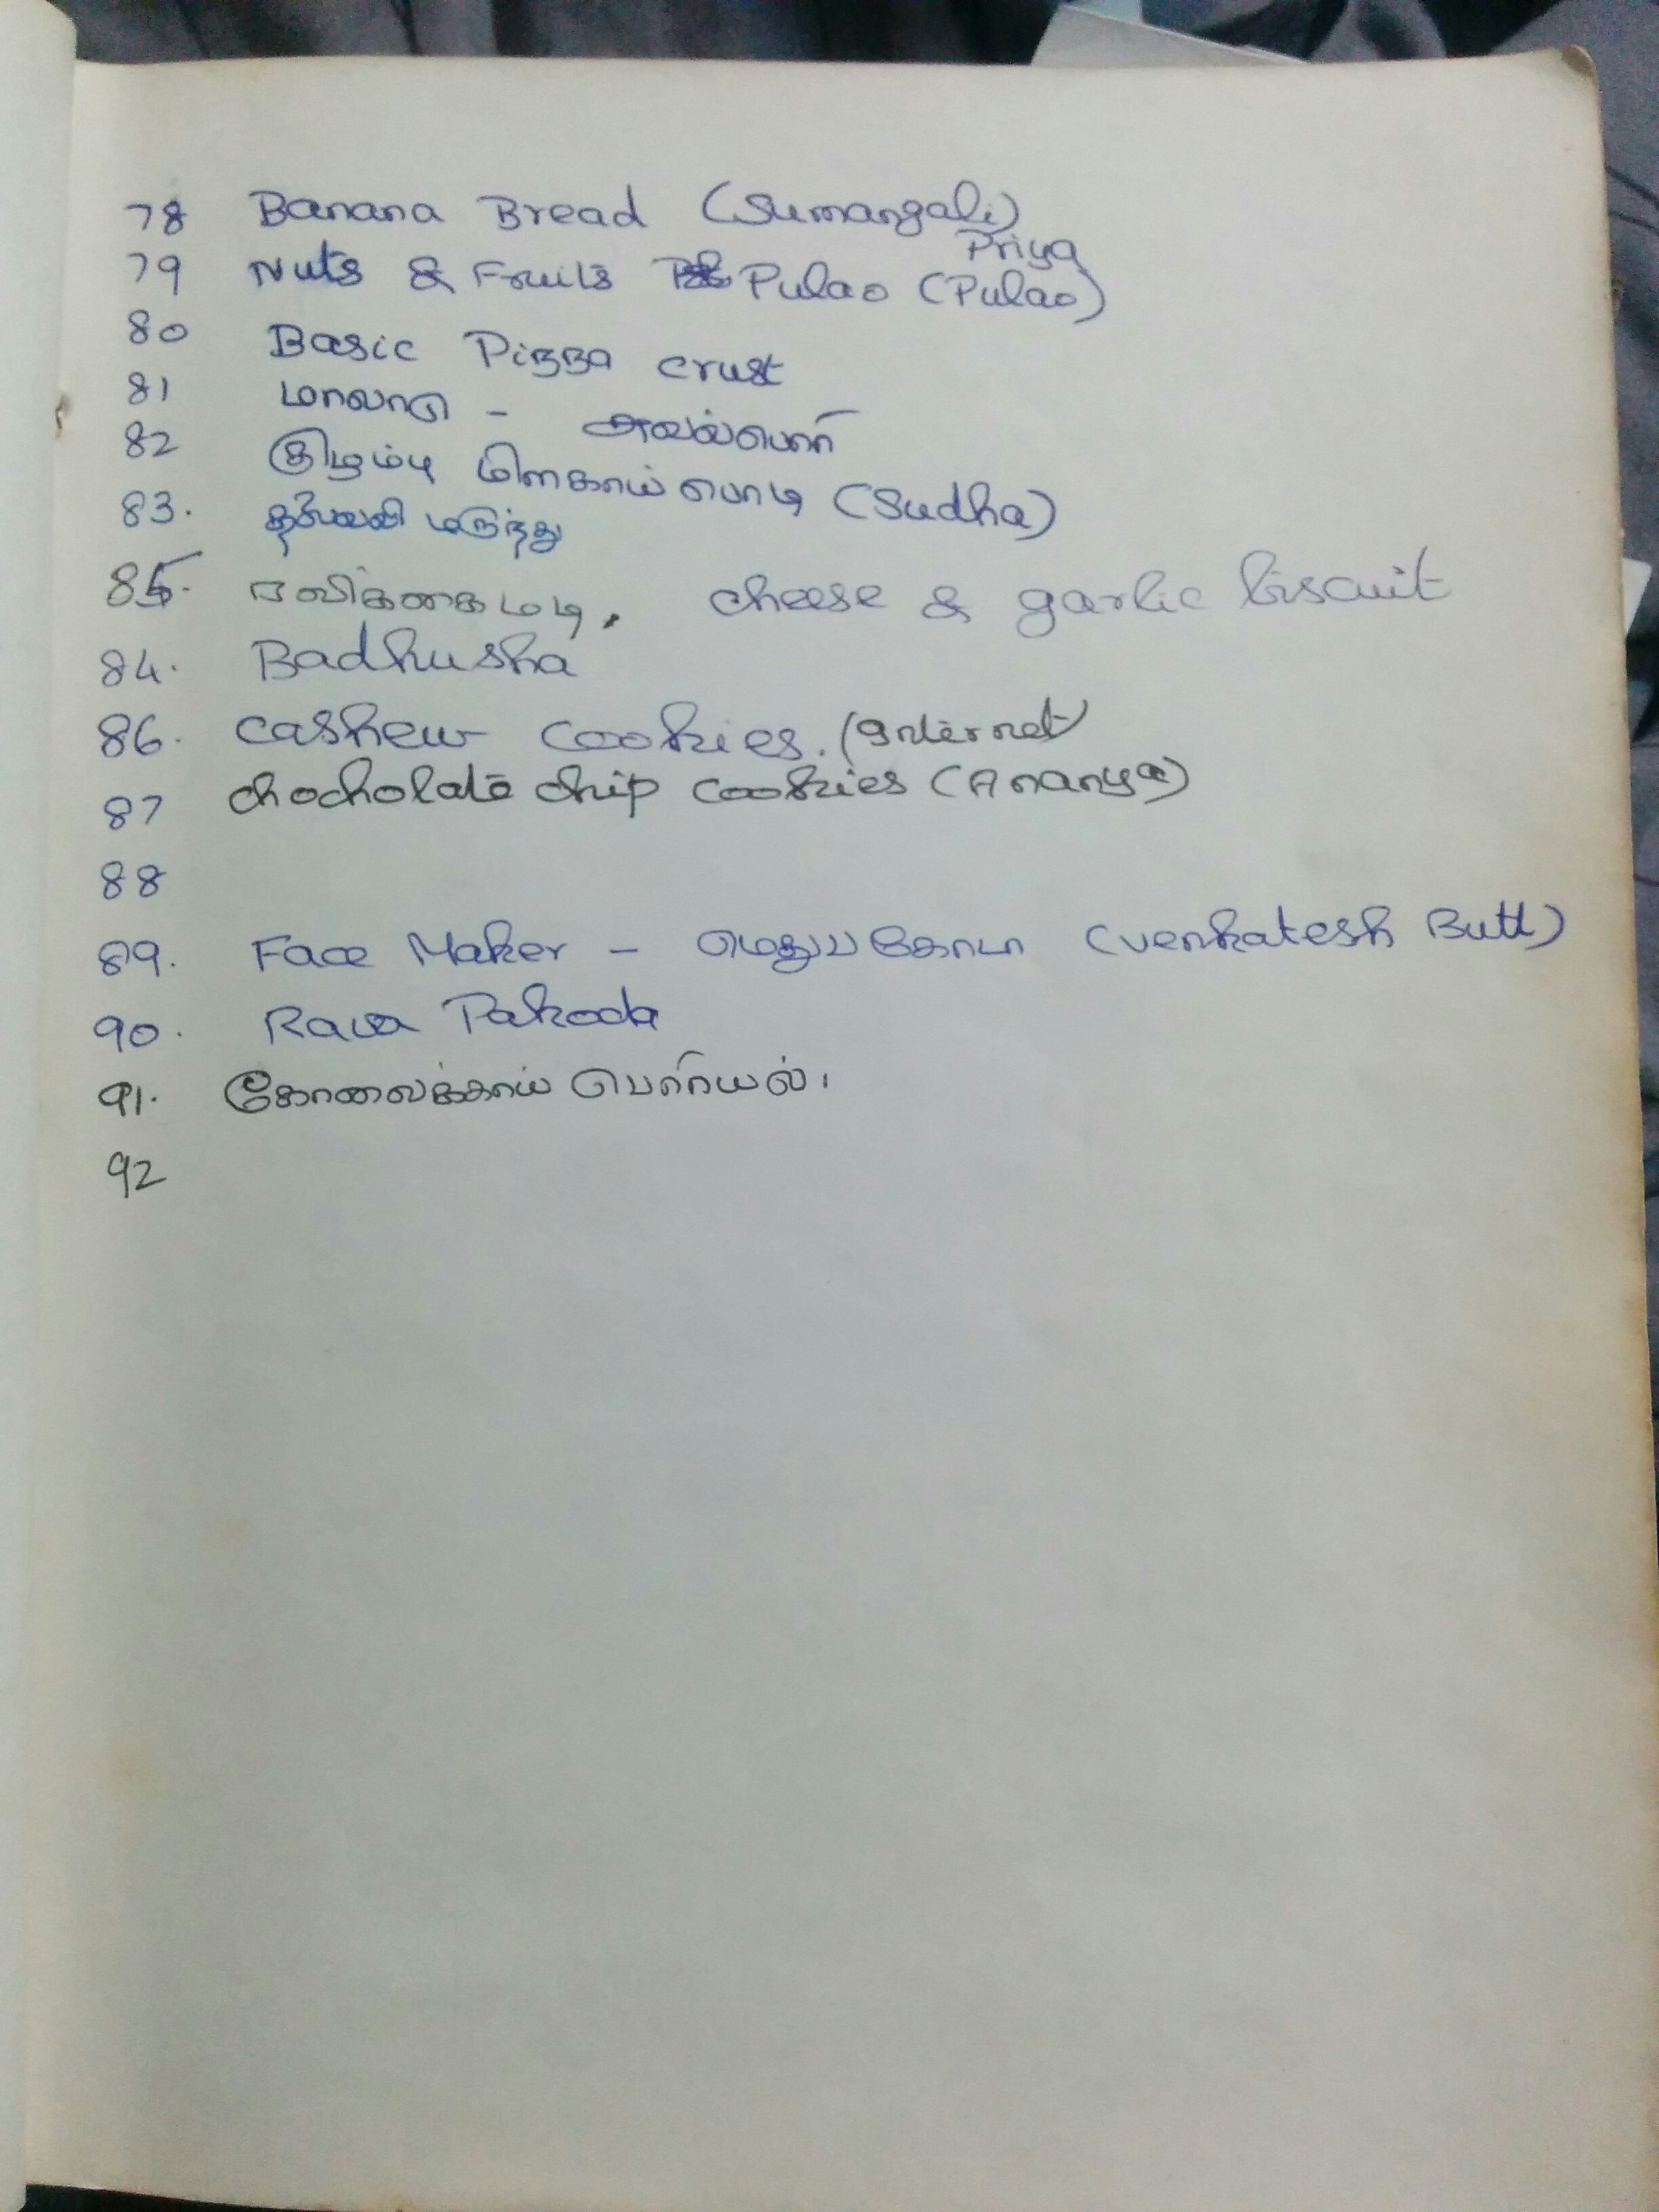 78 Banana Bread (Sumangali)
Priya
79 Nuts & Fruits Pulao (Pulao)
80 Basic Pizza crust
81 மாலாடு -
82 குழம்பு மிளகாய் பொடி (Sudha)
83. மருந்து
85. cheese & garlic biscuit
84. Badhusha
86. cashew cookies. (Internet
87 chocholate chip cookies (Ananya)
88
89. Face Maker - மெதுபகோடா (venkatesh Butt)
90. Rava Pakoda
91. கோவைக்காய் பொரியல்.
92